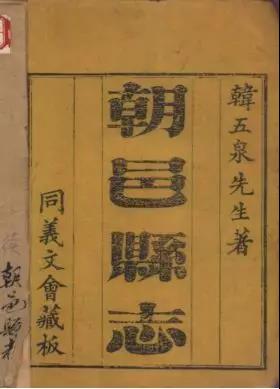 韓五泉先生著
朝邑縣志
同義文會藏板
朝邑縣志